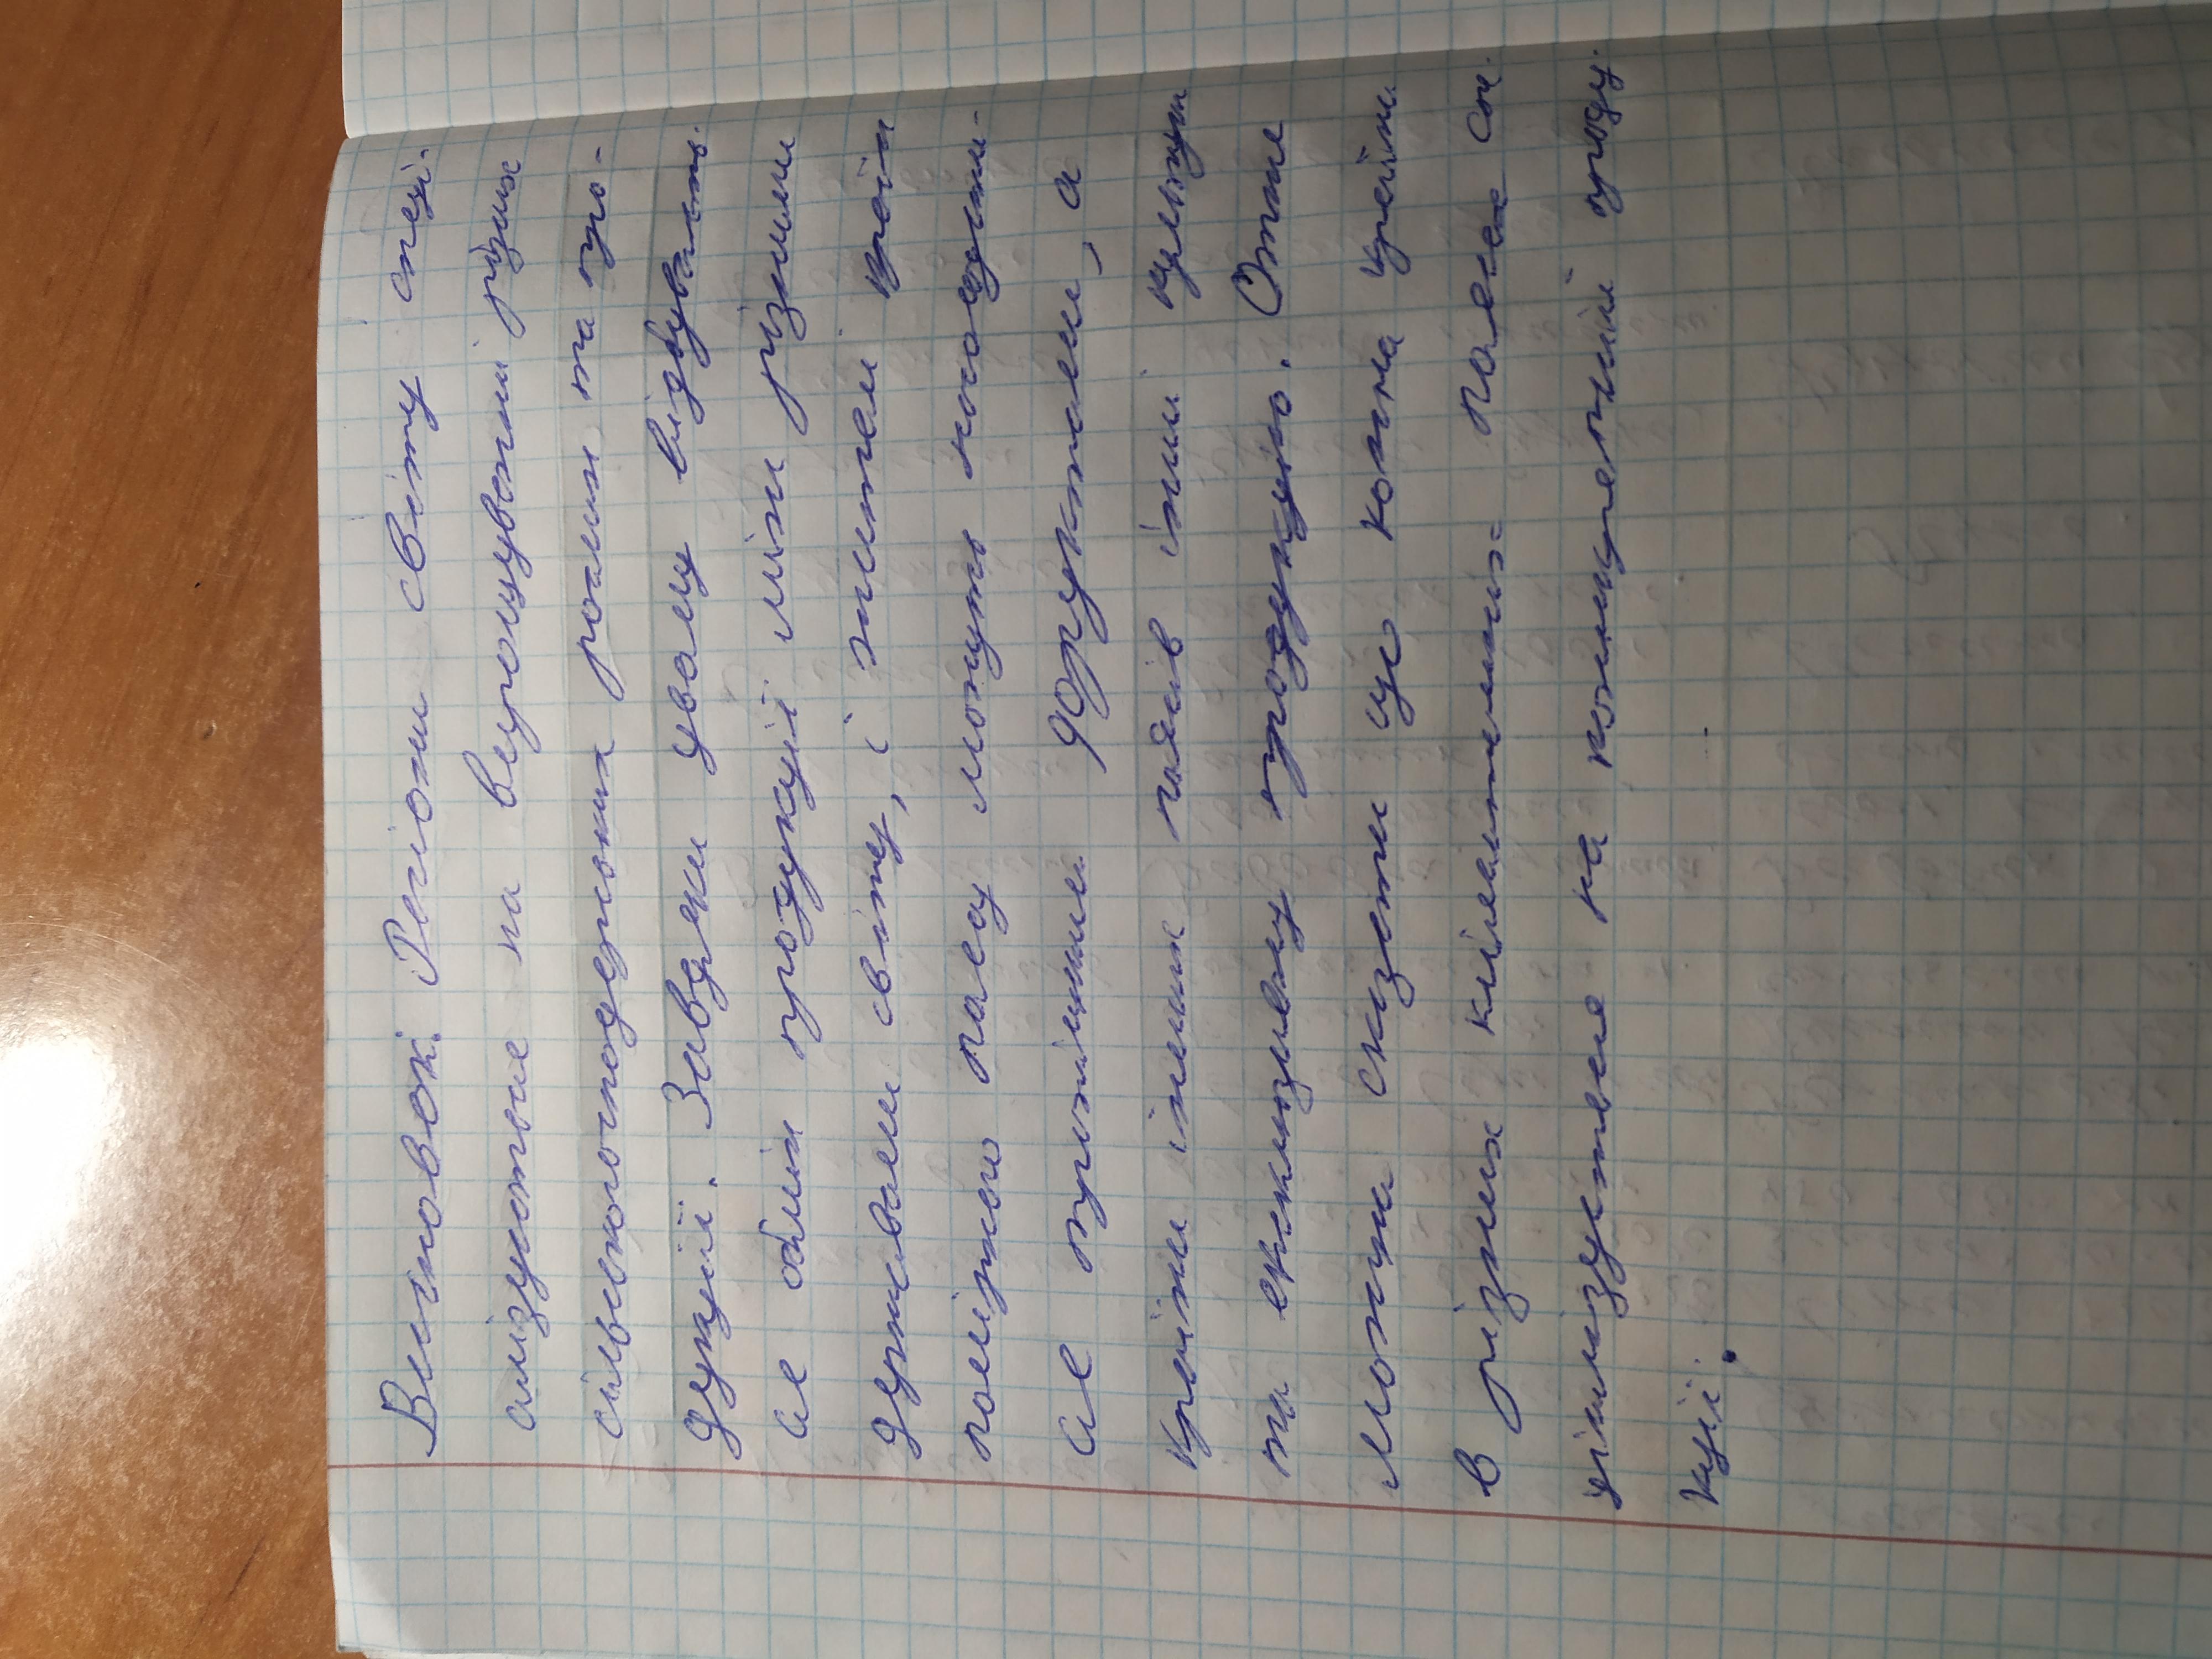 Висновок: Регіони світу спеці-
алізуються на вирощуванні різних
сільськогосподарських рослин та про-
дукції. Завдяки цьому відбуваєть-
ся обмін продукції між різними
державами світу, і жителі країн
помірного поясу можуть насолоджува-
ся тропічними фруктами, а
країни інших поясів інші культури
та ексклюзивну продукцію. Отже
можна сказати що кожна країна
в різних кліматичних поясах сп.
ціалізується на конкретній проду-
кції.